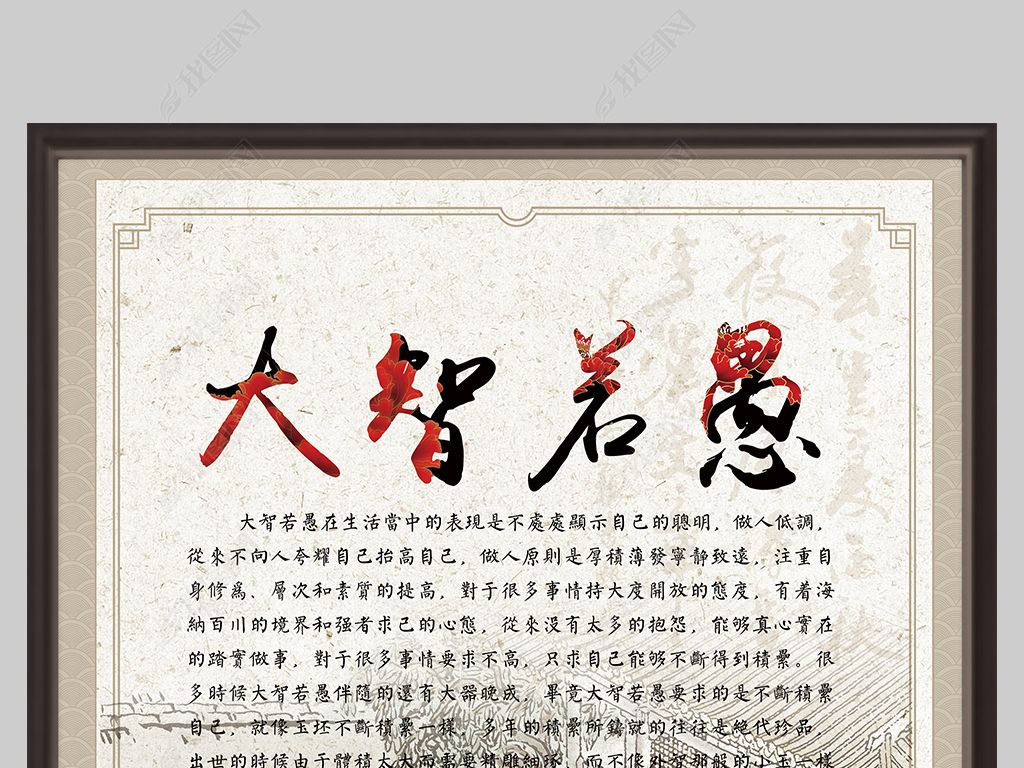 大智若愚
大智若愚在生活當中的表現是不處處顯示自己的聰明，做人低調，
從來不向人夸耀自己抬高自己，做人原則是厚積薄發寧靜致遠，注重自
身修爲、層次和素質的提高，對于很多事情持大度開放的態度，有着海
納百川的境界和强者求己的心態，從來没有太多的抱怨，能够真心實在
的踏實做事，對于很多事情要求不高，只求自己能够不斷得到積纍。很
多時候大智若愚伴隨的還有大器晚成，畢竟大智若愚要求的是不斷積纍
自己，就像玉坯不斷積纍一樣，多年的積纍所鑄就的往往是絶代珍品，
出世的時候由于體積太大而需要精雕細琢，而不像外界那般的小玉一樣